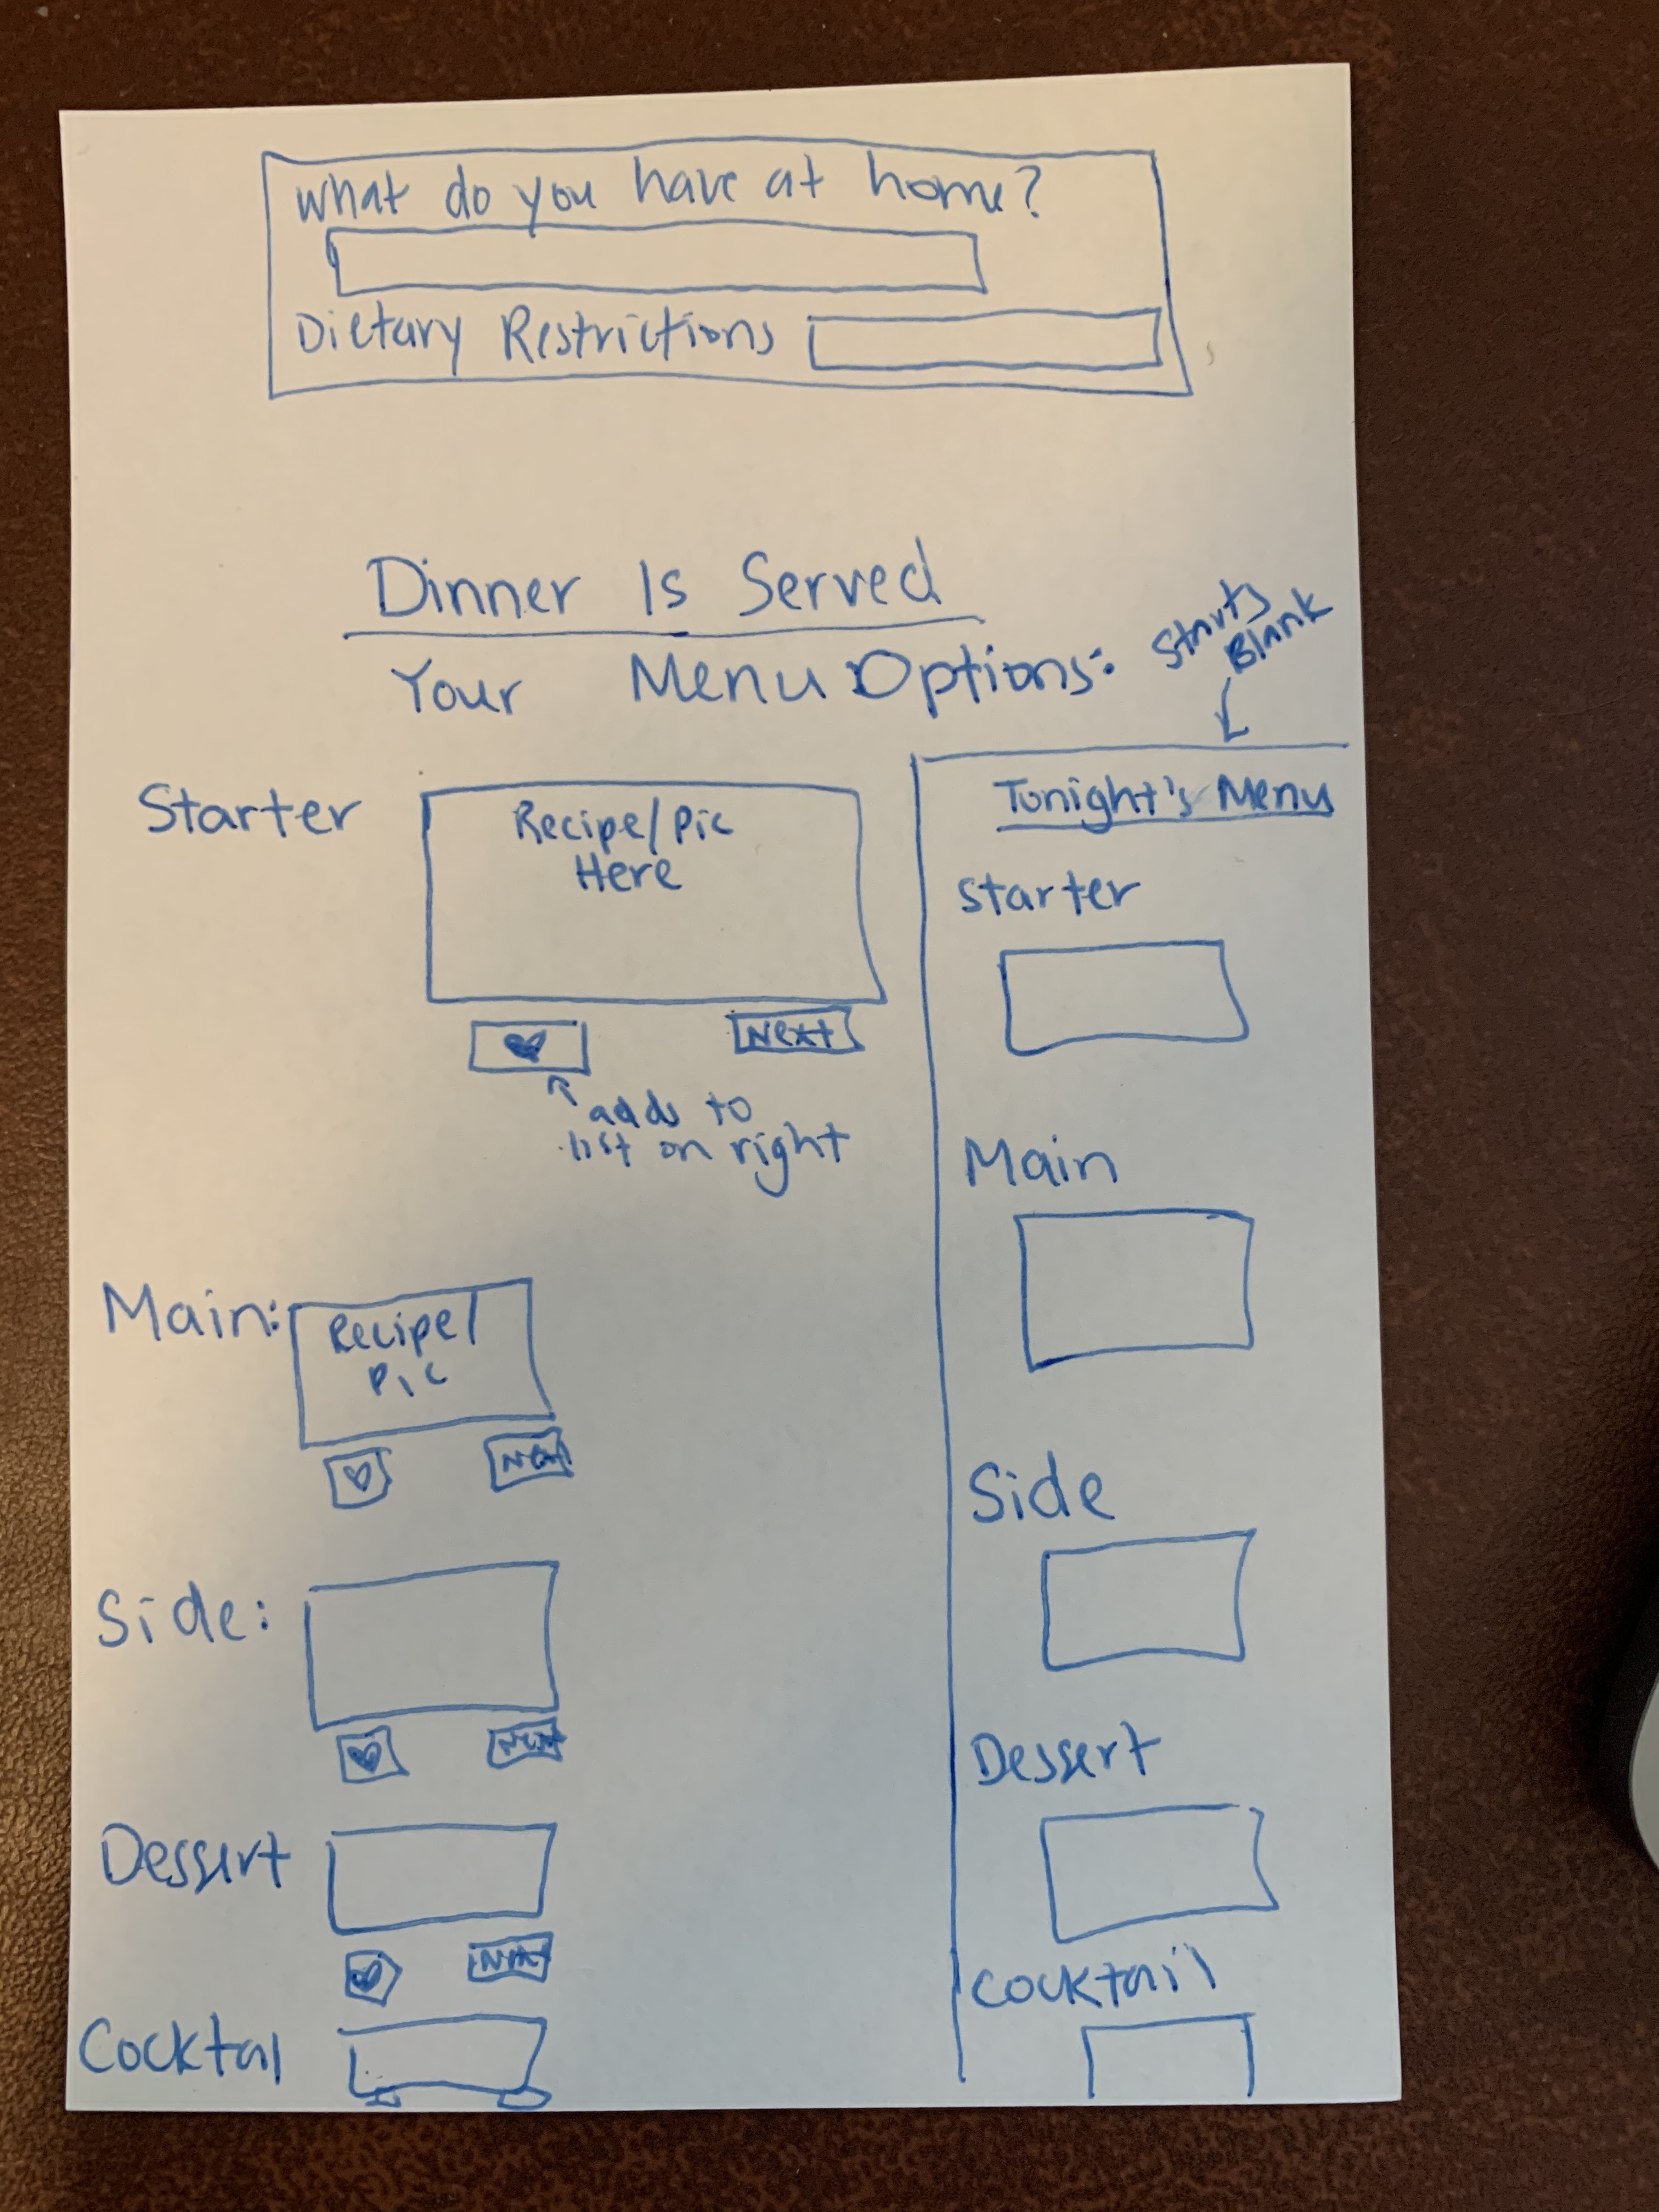 What do you have at home?
Dietary Restrictions
Dinner Is Served
Your Menu Options:
Starts
Blank
Starter
Recipe/Pic
Here
♥
Next
adds to
list on right
Main:
Recipe/
Pic
♥
Next
Side:
♥
Next
Dessert
♥
Next
Cocktail
Tonight's Menu
Starter
Main
Side
Dessert
Cocktail